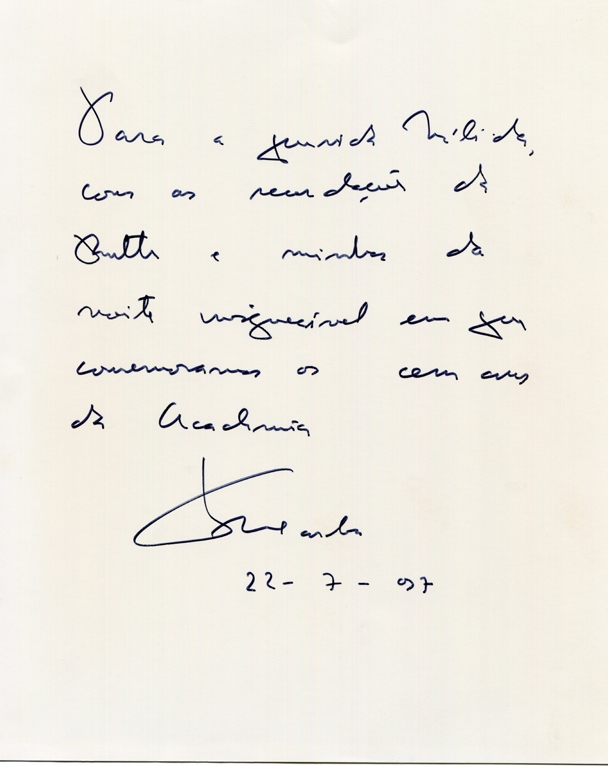 Para a querida Nélida,
com as recordações da
Ruth e minhas da
noite inesquecível em que
comemoramos os cem anos
da Academia
22 - 7 - 97